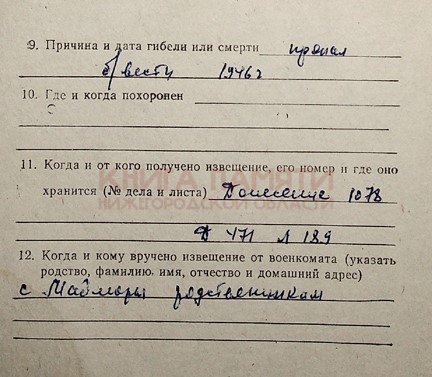 9. Причина и дата гибели или смерти пропал
б/вести 1946 г
10. Где и когда похоронен
11. Когда и от кого получено извещение, его номер и где оно
КНИГА ПАМЯТИ
хранится (№ дела и листа) Донесение 1078
НИЖЕГОРОДСКОЙ ОБЛАСТИ
Д 471 л 189
12. Когда и кому вручено извещение от военкомата (указать
родство, фамилию, имя, отчество и домашний адрес)
с Маймары родственникам